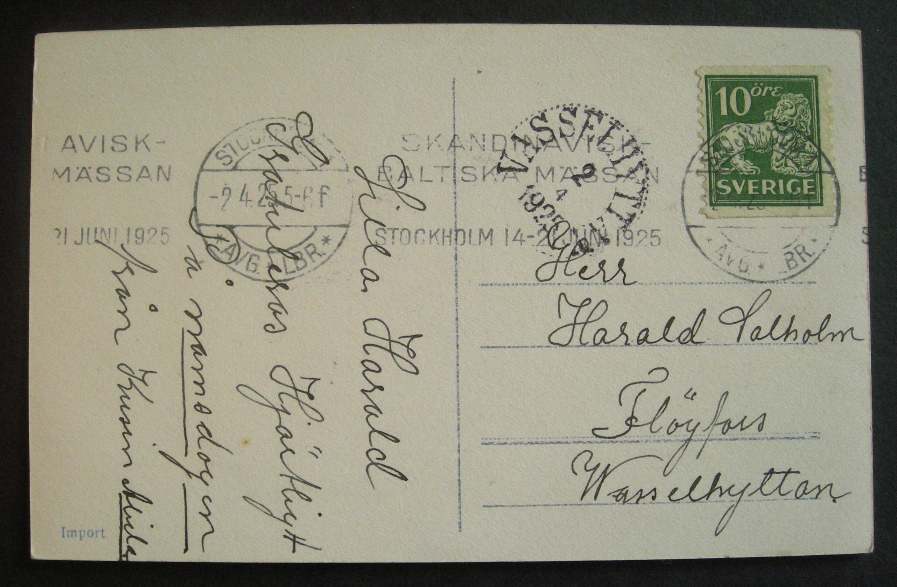 AVISK-
MÄSSAN
21 JUNI 1925
-2 4.25 5-6 F
*AVG. LBR*
SKANDINAVISK-
BALTISKA MÄSSAN
STOCKHOLM 14-21 JUNI 1925
VASSELHYTTAN
2
4
1925
10 öre
SVERIGE
*AVG. * BR.*
Lilla Harald
Gratuleras Hjärtligt
å namsdagen
från Kusin
Herr
Harald Salholm
Flöyfors
Wasselhyttan
Import